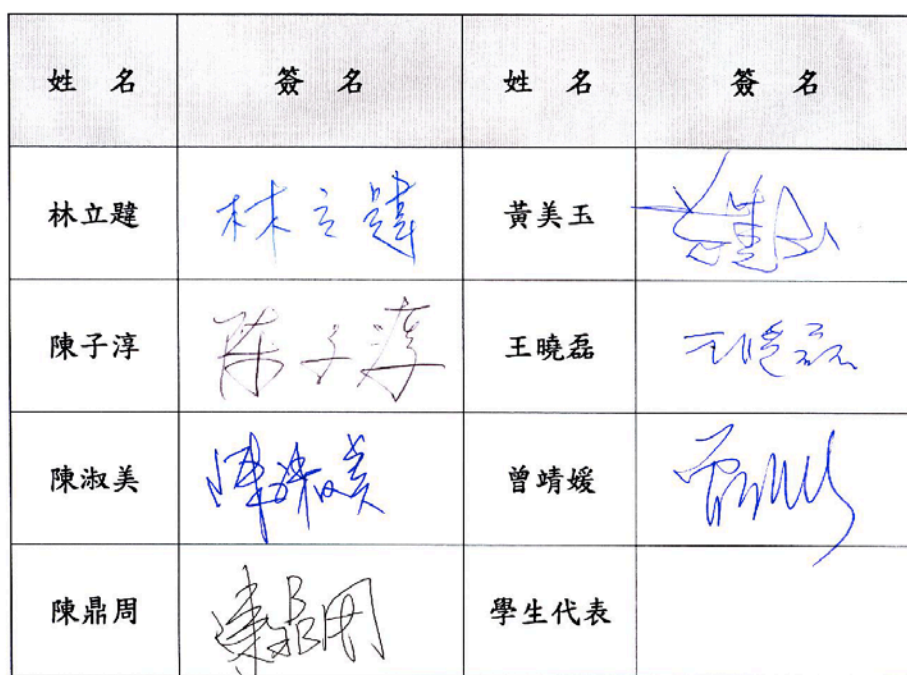 姓 名 簽 名 姓 名 簽 名
林立韙 林立韙 黃美玉
陳子淳 陈子淳 王曉磊
陳淑美 陳淑美 曾靖媛
陳鼎周 陳鼎周 學生代表